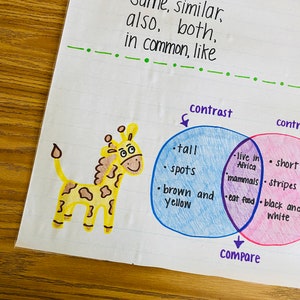 same, similar,
also, both,
in common, like
contrast
• tall
• spots
• brown and
yellow
• live in
Africa
• mammals
• eat food
• short
• stripes
• black and
white
compare